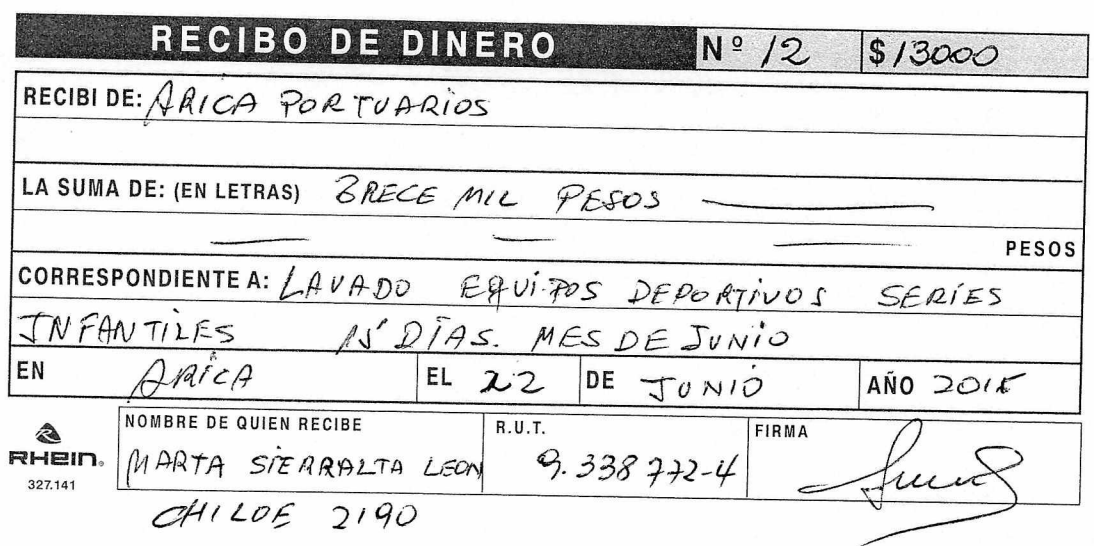 RECIBO DE DINERO Nº 12 $13000
RECIBI DE: ARICA PORTUARIOS
LA SUMA DE: (EN LETRAS) TRECE MIL PESOS
PESOS
CORRESPONDIENTE A: LAVADO EQUIPOS DEPORTIVOS SERIES
INFANTILES 15 DÍAS. MES DE JUNIO
EN ARICA EL 22 DE JUNIO AÑO 2015
NOMBRE DE QUIEN RECIBE R.U.T. FIRMA
RHEIN. MARTA SIERRALTA LEON 9.338772-4
327.141
CHILOE 2190